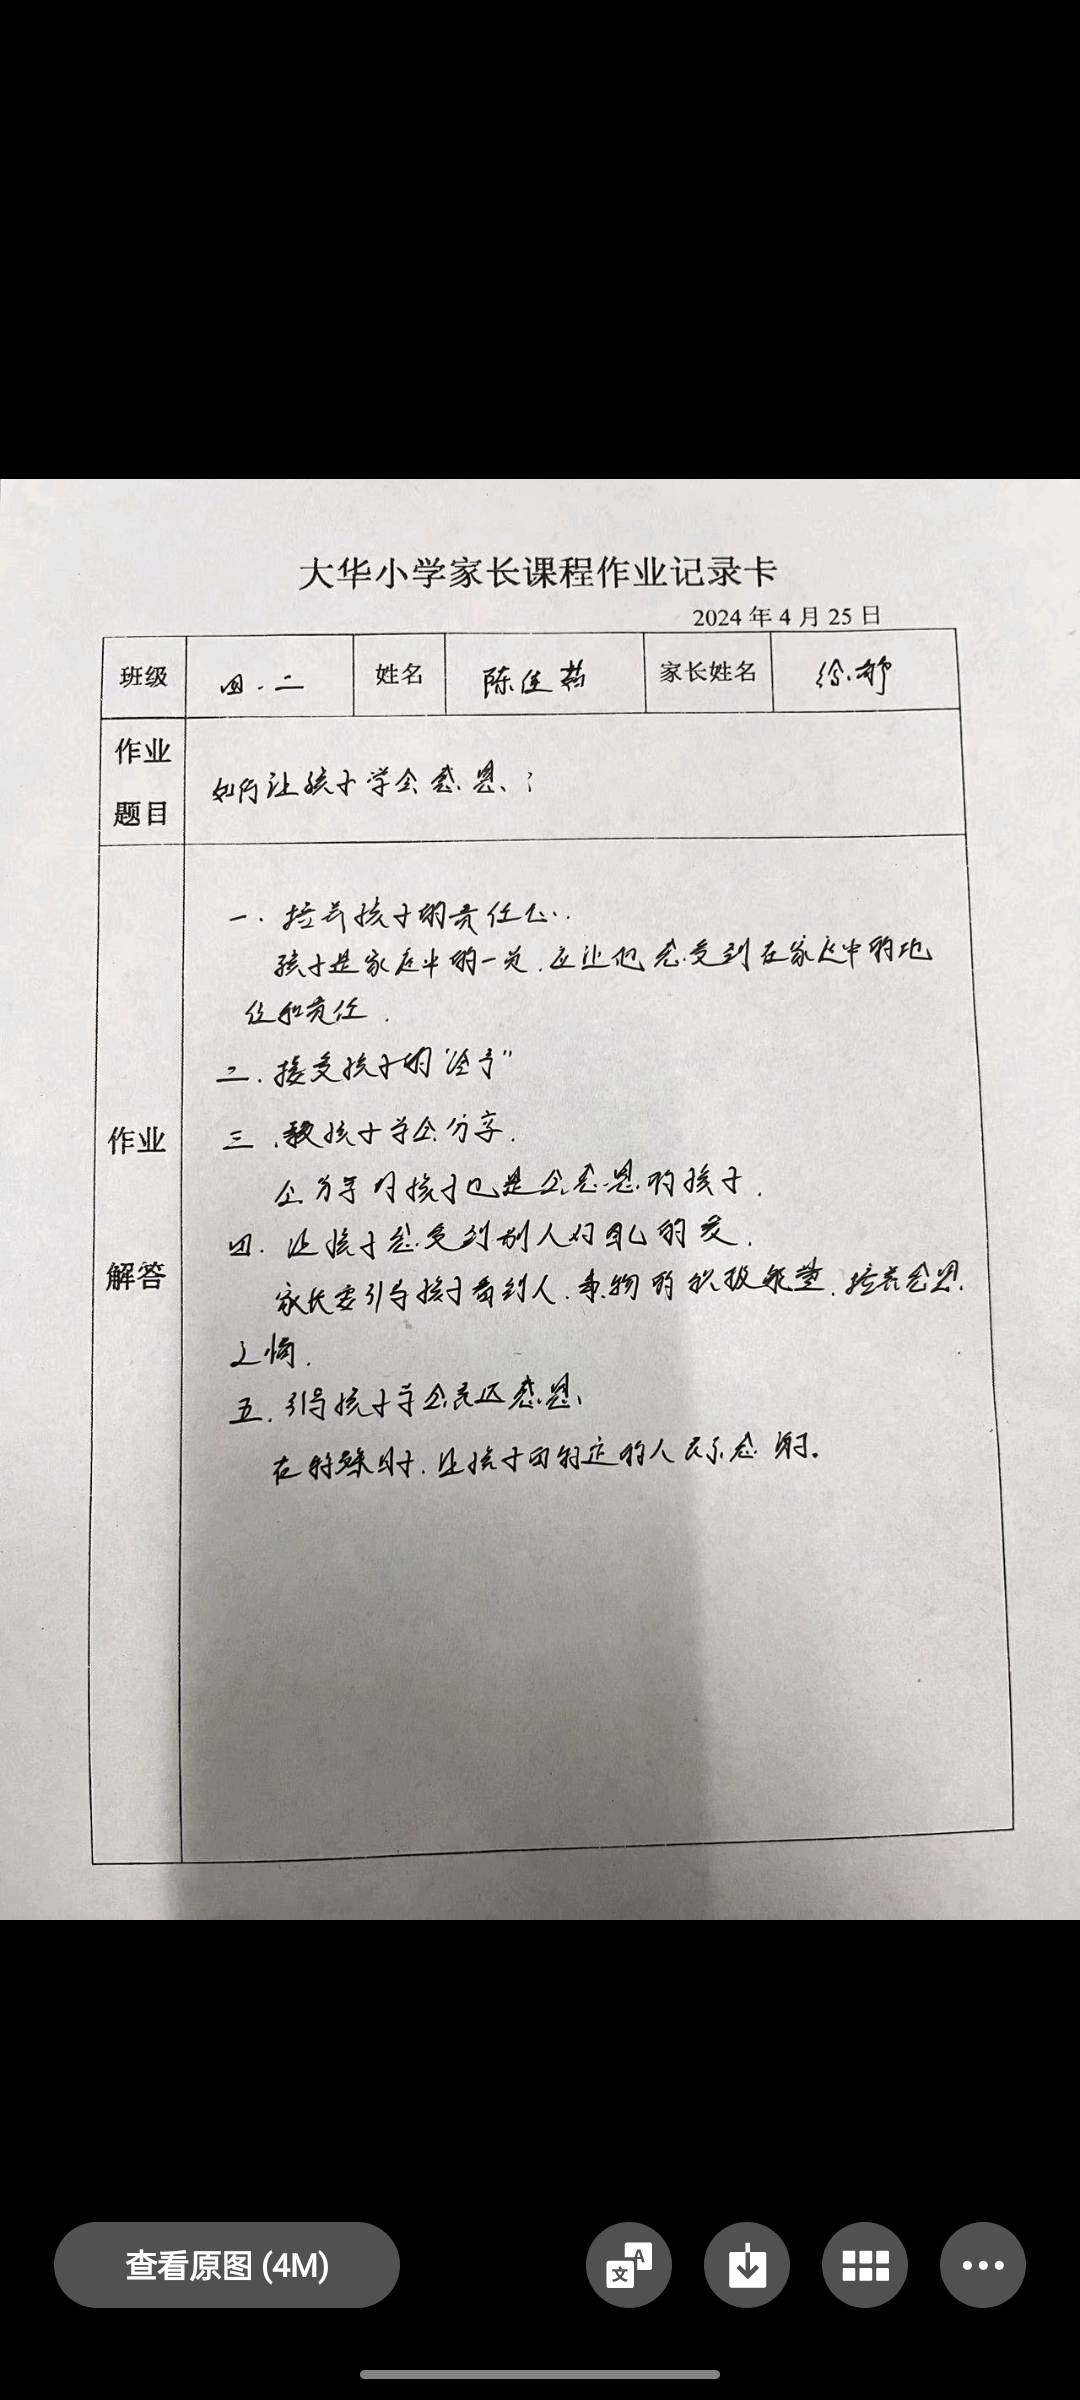 大华小学家长课程作业记录卡
2024 年 4 月 25 日
班级 四.二 姓名 陈佳 家长姓名 徐
作业题目 如何让孩子学会感恩?
作业解答
一.培养孩子的责任心.
孩子是家庭中的一员.应让他感受到在家庭中的地
位和责任.
二.接受孩子的“给予”
三.教孩子学会分享.
会分享的孩子也是会感恩的孩子.
四.让孩子感受到别人对自己的爱.
家长要引导孩子看到人.事.物的积极能量.培养感恩
之情.
五.引导孩子学会表达感恩.
在特殊日子.让孩子向特定的人表示感谢。
查看原图 (4M)